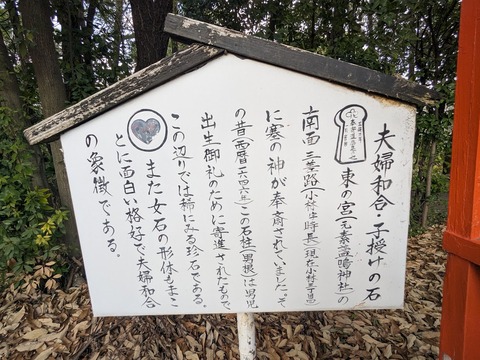 夫婦和合・子授けの石
東の宮(元素盞嗚神社)の
南面 三叢路(小林
に塞の神が奉斎されていました。
の昔(西暦一六四六年)この石柱(男根)は男児
出生御礼のために寄進されたもので
この辺りでは稀にみる珍石である。
また女石の形体もまこ
とに面白い格好で夫婦和合
の象徴である。